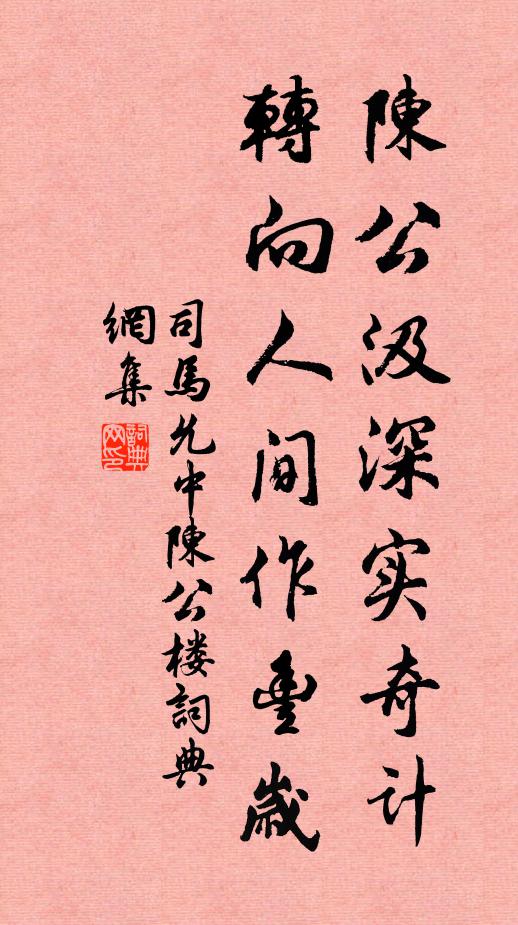 陳公汲深实奇计
轉向人间作豊歲
司馬允中陳公楼詞典
網集
詞典
网印